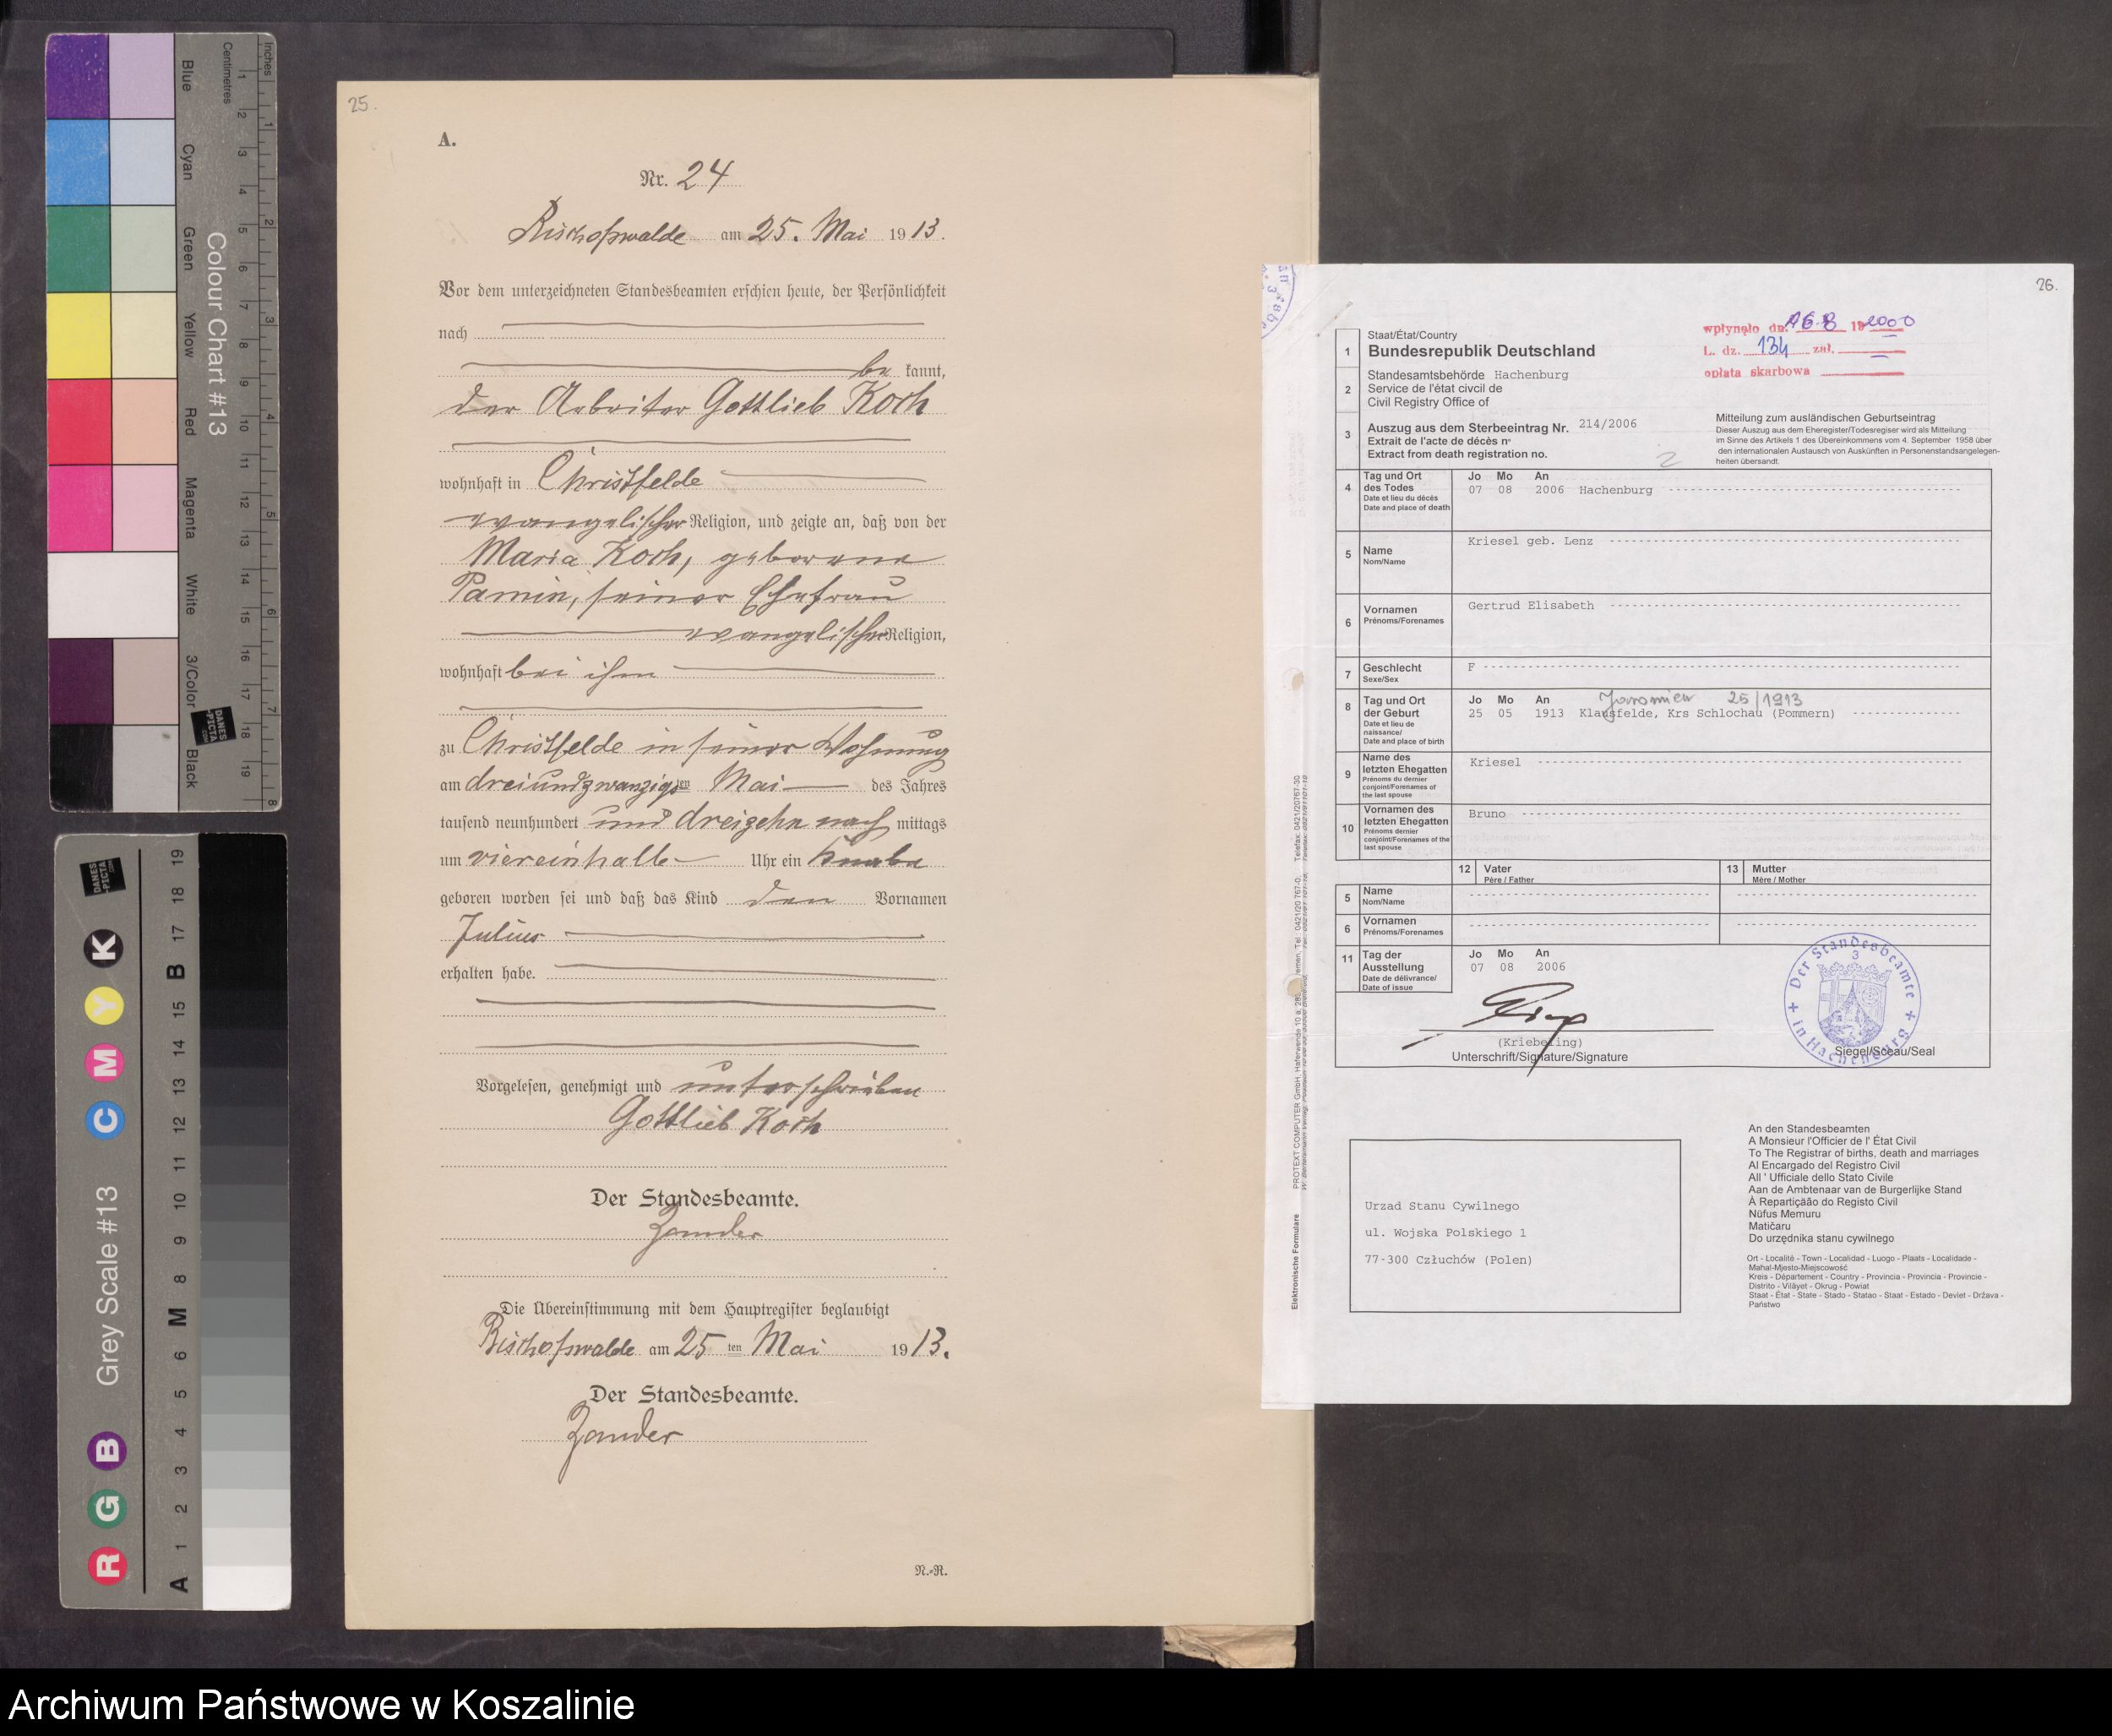 Inches
Centimetres
Colour Chart #13
Blue
Cyan
Green
Yellow
Red
Magenta
White
3/Color
Black
DANES
PICTA
.COM
1 2 3 4 5 6 7 8 9 10 11 12 13 14 15 16 17 18 19
1 2 3 4 5 6 7 8
Grey Scale #13
R G B C M Y K
A 1 2 3 4 5 6 M 8 9 10 11 12 13 14 15 B 17 18 19
DANES
PICTA
25.
A.
Nr. 24
Bischofswalde am 25. Mai 1913.
Vor dem unterzeichneten Standesbeamten erschien heute, der Persönlichkeit
nach
be kannt,
der Arbeiter Gottlieb Koch
wohnhaft in Christfelde
evangelischer Religion, und zeigte an, daß von der
Maria Koch, geborene
Pamin, seiner Ehefrau
evangelischer Religion,
wohnhaft bei ihm
zu Christfelde in seiner Wohnung
am dreiundzwanzigsten Mai des Jahres
tausend neunhundert und dreizehn nach mittags
um viereinhalb Uhr ein Knabe
geboren worden sei und daß das Kind den Vornamen
Julius
erhalten habe.
Vorgelesen, genehmigt und unterschrieben
Gottlieb Koch
Der Standesbeamte.
Zander
Die Übereinstimmung mit dem Hauptregister beglaubigt
Bischofswalde am 25 ten Mai 1913.
Der Standesbeamte.
Zander
N.-R.
26.
wpłynęło dn. 16.8 2000
L. dz. 134 zał.
opłata skarbowa
1 Staat/État/Country
Bundesrepublik Deutschland
2 Standesamtsbehörde Hachenburg
Service de l'état civcil de
Civil Registry Office of
3 Auszug aus dem Sterbeeintrag Nr. 214/2006
Extrait de l'acte de décès n°
Extract from death registration no.
Mitteilung zum ausländischen Geburtseintrag
Dieser Auszug aus dem Eheregister/Todesregiser wird als Mitteilung
im Sinne des Artikels 1 des Übereinkommens vom 4. September 1958 über
den internationalen Austausch von Auskünften in Personenstandsangelegen-
heiten übersandt.
2
4 Tag und Ort
des Todes
Date et lieu du décès
Date and place of death
Jo Mo An
07 08 2006 Hachenburg
5 Name
Nom/Name
Kriesel geb. Lenz
6 Vornamen
Prénoms/Forenames
Gertrud Elisabeth
7 Geschlecht
Sexe/Sex
F
8 Tag und Ort
der Geburt
Date et lieu de
naissance/
Date and place of birth
Jo Mo An Jaromierz 25/1913
25 05 1913 Klausfelde, Krs Schlochau (Pommern)
9 Name des
letzten Ehegatten
Prénoms du dernier
conjoint/Forenames of
the last spouse
Kriesel
10 Vornamen des
letzten Ehegatten
Prénoms dernier
conjoint/Forenames of the
last spouse
Bruno
12 Vater
Père / Father
13 Mutter
Mère / Mother
5 Name
Nom/Name
6 Vornamen
Prénoms/Forenames
11 Tag der
Ausstellung
Date de délivrance/
Date of issue
Jo Mo An
07 08 2006
(Kriebeling)
Unterschrift/Signature/Signature
Der Standesbeamte
3
in Hachenburg
Siegel/Sceau/Seal
Urzad Stanu Cywilnego
ul. Wojska Polskiego 1
77-300 Człuchów (Polen)
An den Standesbeamten
A Monsieur l'Officier de l' État Civil
To The Registrar of births, death and marriages
Al Encargado del Registro Civil
All ' Ufficiale dello Stato Civile
Aan de Ambtenaar van de Burgerlijke Stand
À Repartiçãão do Registo Civil
Nüfus Memuru
Matičaru
Do urzędnika stanu cywilnego
Ort - Localité - Town - Localidad - Luogo - Plaats - Localidade -
Mahal-Mjesto-Miejscowość
Kreis - Département - Country - Provincia - Provincia - Provincie -
Distrito - Vilâyet - Okrug - Powiat
Staat - État - State - Stado - Statao - Staat - Estado - Devlet - Država -
Państwo
Elektronische Formulare
PROTEXT COMPUTER GmbH
Archiwum Państwowe w Koszalinie